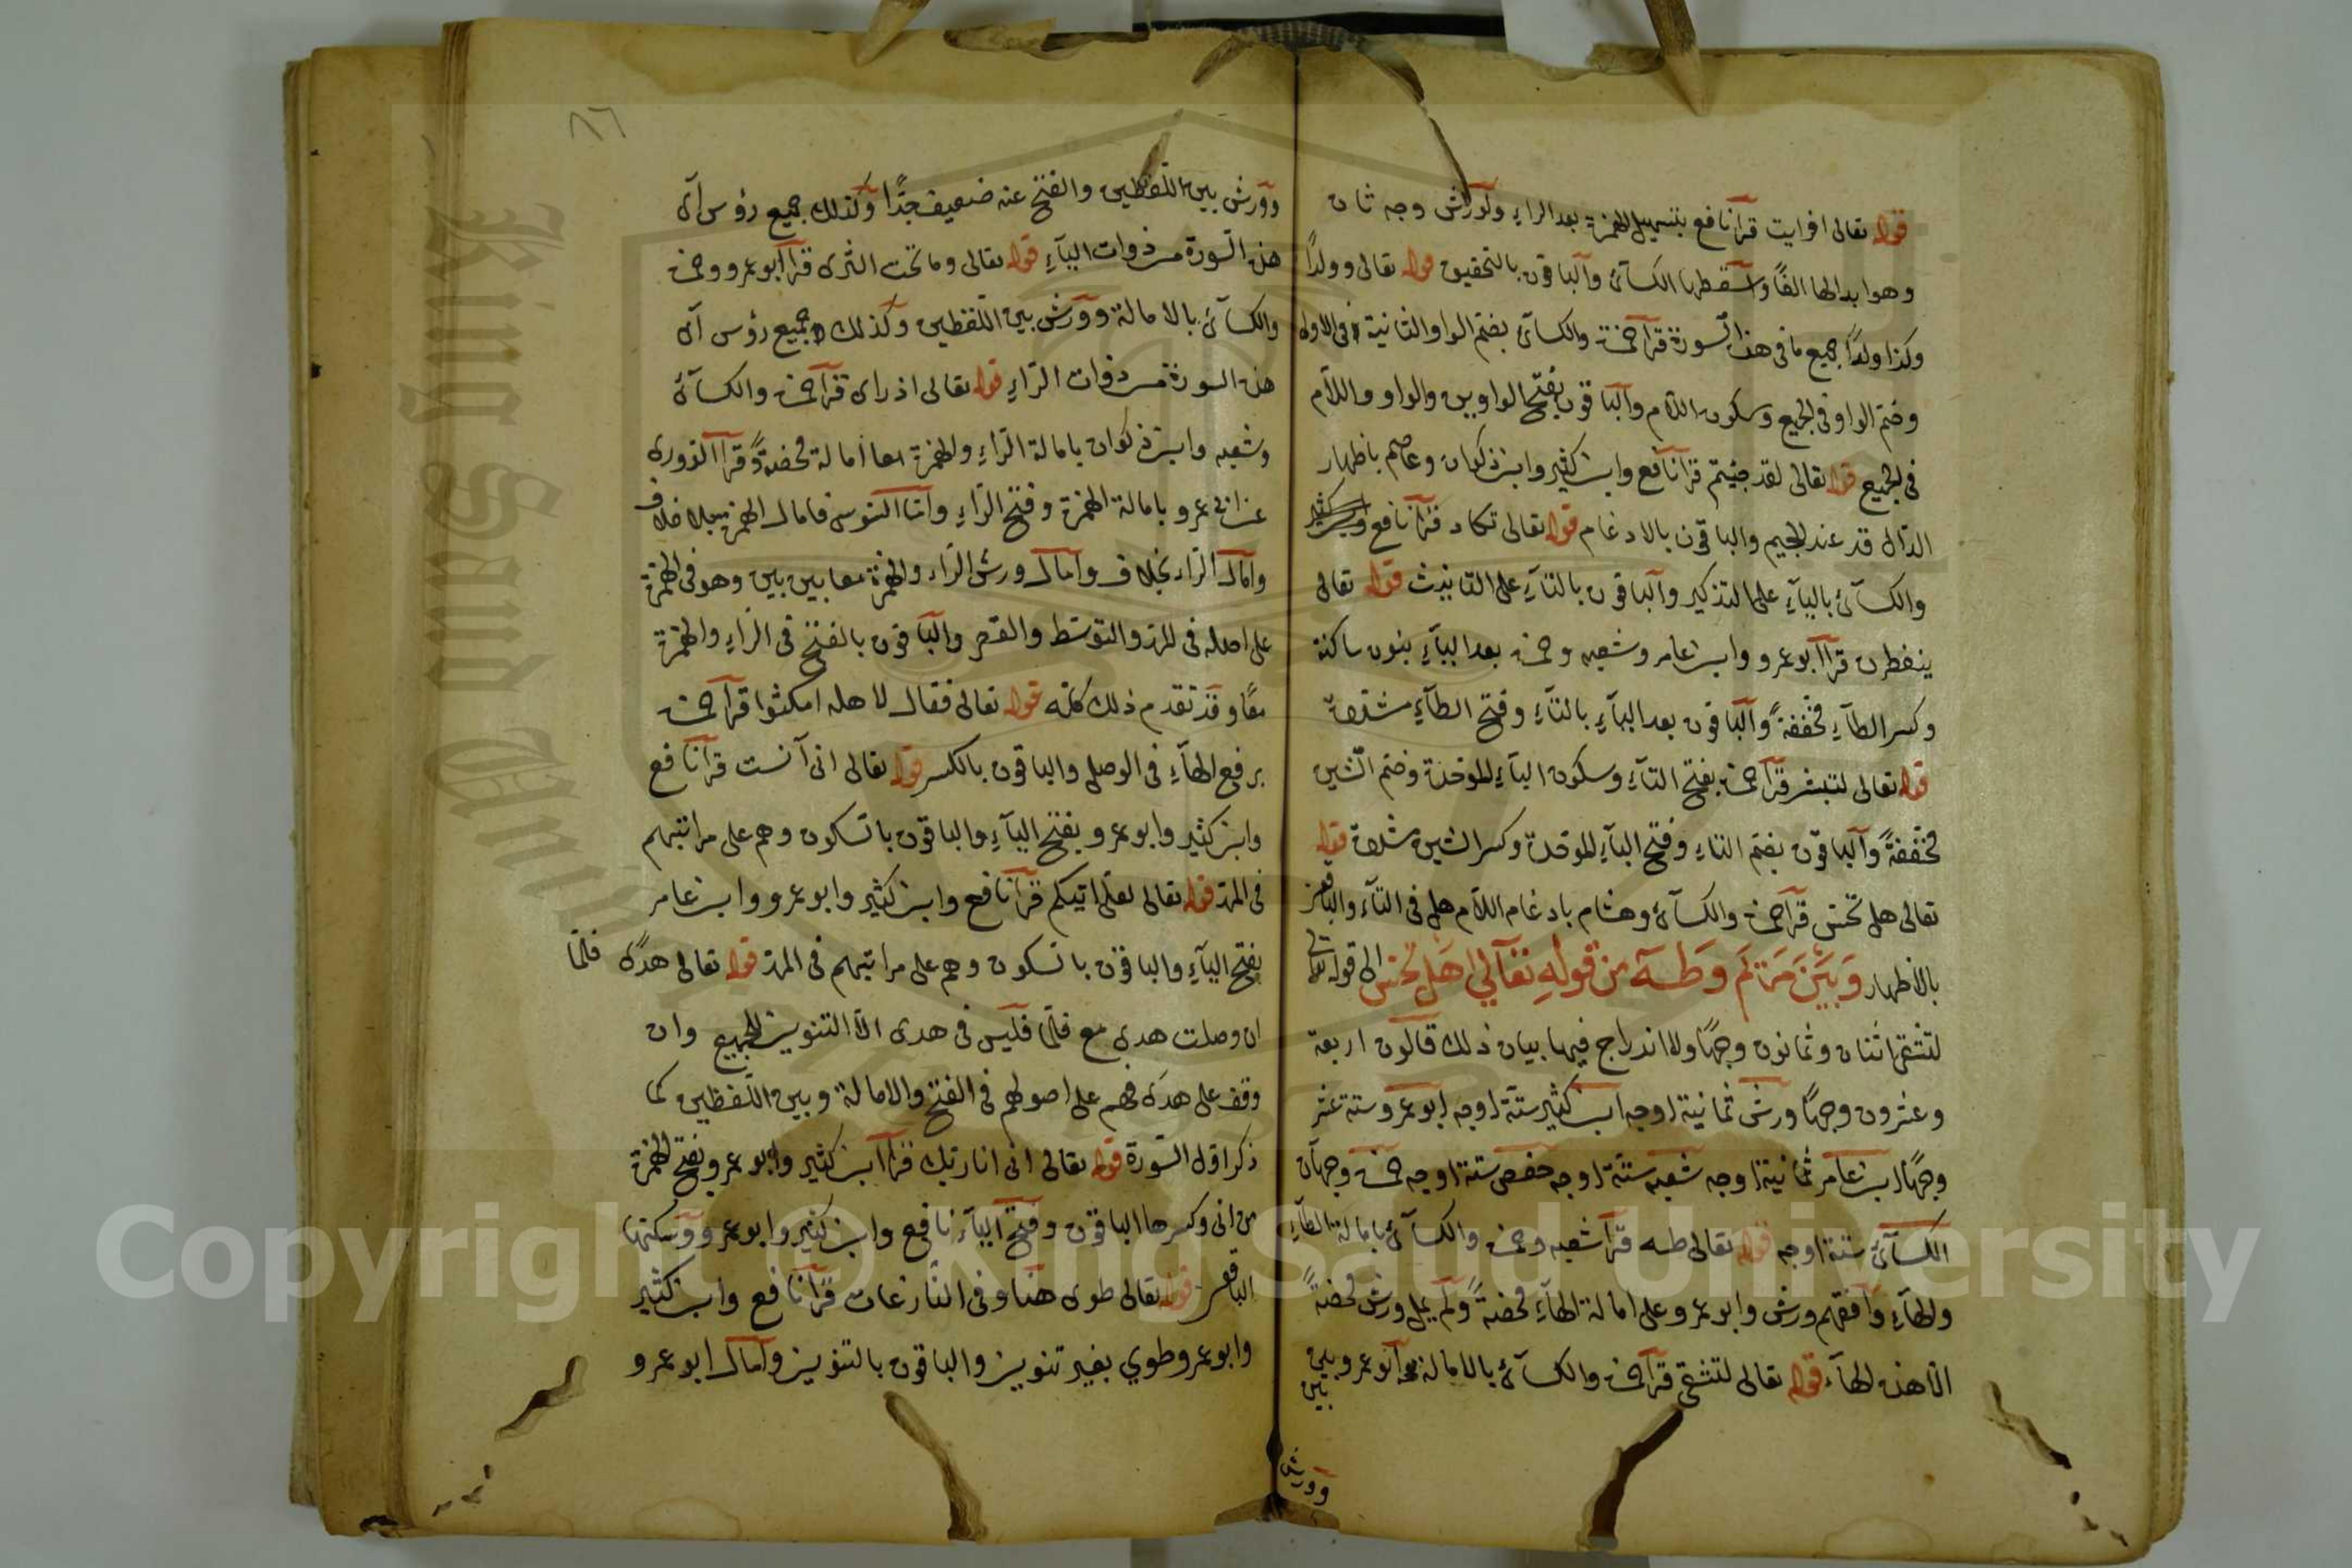 قوله تعالى افرايت قرا نافع بتسهيل الهمزة بعد الراء ولورش وجه ثان
وهو ابدالها الفًا واسقطها الكسائي والباقون بالتحقيق قوله تعالى وولدًا
وكذا ولدًا جميع ما في هذه السورة قرا حمزة والكسائي بضم الواو الثانية في الاولى
وضم الواو في الجميع وسكون اللام والباقون بفتح الواوين والواو واللام
في الجميع قوله تعالى لقد جئتم قرا نافع وابن كثير وابن ذكوان وعاصم باظهار
الدال قد عند الجيم والباقون بالادغام قوله تعالى تكاد قرا نافع
والكسائي بالياء على التذكير والباقون بالتاء على التانيث قوله تعالى
ينفطرن قرا ابو عمرو وابن عامر وشعبه وحمزة بعد الياء بنون ساكنة
وكسر الطاء مخففةً والباقون بعد الياء بالتاء وفتح الطاء مشددة
قوله تعالى لتبشر قرا حمزة بفتح التاء وسكون الباء الموحدة وضم الشين
مخففةً والباقون بضم التاء وفتح الباء الموحدة وكسر الشين مشددة قوله
تعالى هل تحس قرا حمزة والكسائي وهشام بادغام اللام هل في التاء والباقون
بالاظهار وَبَيْنَ مَرْيَمَ وَطـه مِن قَولِهِ تَعَالي هَل تحس الى قوله تعالى
لتشقى اثنان وثمانون وجهًا ولا اندراج فيها بيان ذلك قالون اربعة
وعشرون وجهًا ورش ثمانية اوجه ابن كثير ستة اوجه ابو عمرو ستة عشر
وجهًا ابن عامر ثمانية اوجه شعبه ستة اوجه حفص ستة اوجه حمزة وجهان
الكسائي ستة اوجه قوله تعالى طه قرا شعبه وحمزة والكسائي بامالة الطاء
والهاء وافقهم ورش وابو عمرو على امالة الهاء محضةً ولم يمل ورش محضةً
الا هذه الهاء قوله تعالى لتشقى قرا حمزة والكسائي بالامالة وابو عمرو بين
بين
وورش
٨٦
وورش بين اللفظين والفتح عنه ضعيف جدًّا وكذلك جميع رؤس آي
هذه السورة من ذوات الياء قوله تعالى وما تحت الثرى قرا ابو عمرو وحمزة
والكسائي بالامالة وورش بين اللفظين وكذلك جميع رؤس آي
هذه السورة من ذوات الراء قوله تعالى اذ راى قرا حمزة والكسائي
وشعبه وابن ذكوان بامالة الراء والهمزة معا امالة محضةً وقرا الدورى
عن ابي عمرو بامالة الهمزة وفتح الراء واما السوسى فامال الهمزة بلا خلاف
وامال الراء بخلاف وامال ورش الراء والهمزة معا بين بين وهو في الهمزة
على اصله في المد والتوسط والقصر والباقون بالفتح في الراء والهمزة
معًا وقد تقدم ذلك كله قوله تعالى فقال لاهله امكثوا قرا حمزة
برفع الهاء في الوصل والباقون بالكسر قوله تعالى انى آنست قرا نافع
وابن كثير وابو عمرو بفتح الياء والباقون بالسكون وهم على مراتبهم
في المد قوله تعالى لعلى اتيكم قرا نافع وابن كثير وابو عمرو وابن عامر
بفتح الياء والباقون بالسكون وهم على مراتبهم في المد قوله تعالى هدًى فلمّا
ان وصلت هدى مع فلمّا فليس في هدى الا التنوين للجميع وان
وقف على هدى فهم على اصولهم في الفتح والامالة وبين اللفظين كما
ذكر اول السورة قوله تعالى انى انا ربك قرا ابن كثير وابو عمرو بفتح الهمزة
من انى وكسرها الباقون وفتح الياء نافع وابن كثير وابو عمرو وسكنها
الباقون قوله تعالى طوى هنا وفي النازعات قرا نافع وابن كثير
وابو عمرو طوي بغير تنوين والباقون بالتنوين وامال ابو عمرو
King Saud University
Copyright © King Saud University